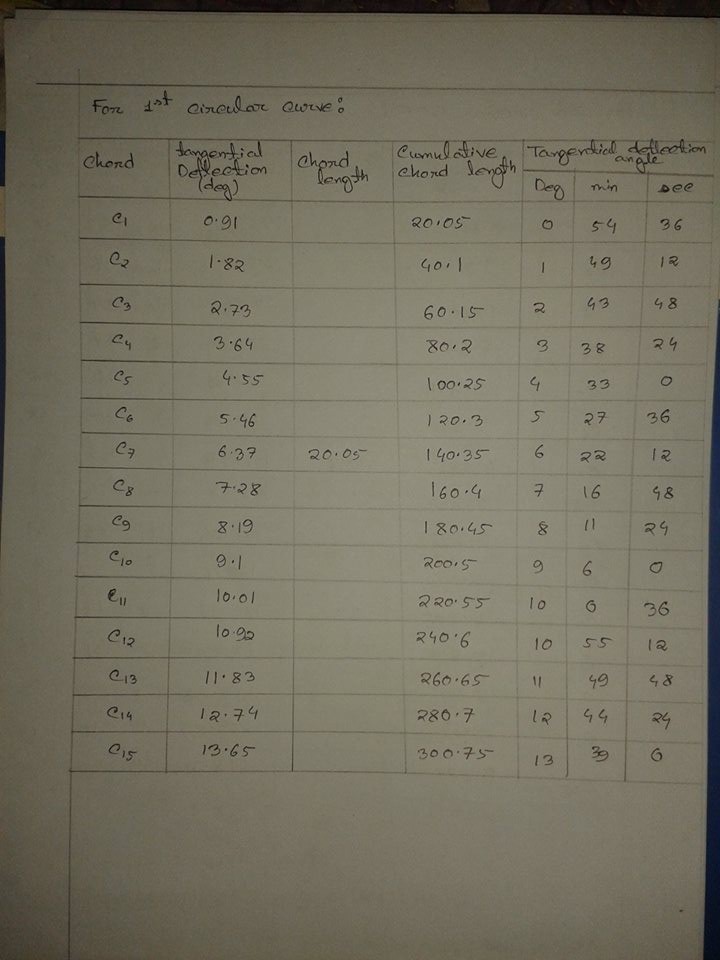 For 1st circular curve:
Chord | tangential Deflection (deg) | Chord length | Cumulative chord length | Tangential deflection angle
Deg | min | sec
C1 | 0.91 | | 20.05 | 0 | 54 | 36
C2 | 1.82 | | 40.1 | 1 | 49 | 12
C3 | 2.73 | | 60.15 | 2 | 43 | 48
C4 | 3.64 | | 80.2 | 3 | 38 | 24
C5 | 4.55 | | 100.25 | 4 | 33 | 0
C6 | 5.46 | | 120.3 | 5 | 27 | 36
C7 | 6.37 | 20.05 | 140.35 | 6 | 22 | 12
C8 | 7.28 | | 160.4 | 7 | 16 | 48
C9 | 8.19 | | 180.45 | 8 | 11 | 24
C10 | 9.1 | | 200.5 | 9 | 6 | 0
C11 | 10.01 | | 220.55 | 10 | 0 | 36
C12 | 10.92 | | 240.6 | 10 | 55 | 12
C13 | 11.83 | | 260.65 | 11 | 49 | 48
C14 | 12.74 | | 280.7 | 12 | 44 | 24
C15 | 13.65 | | 300.75 | 13 | 39 | 0